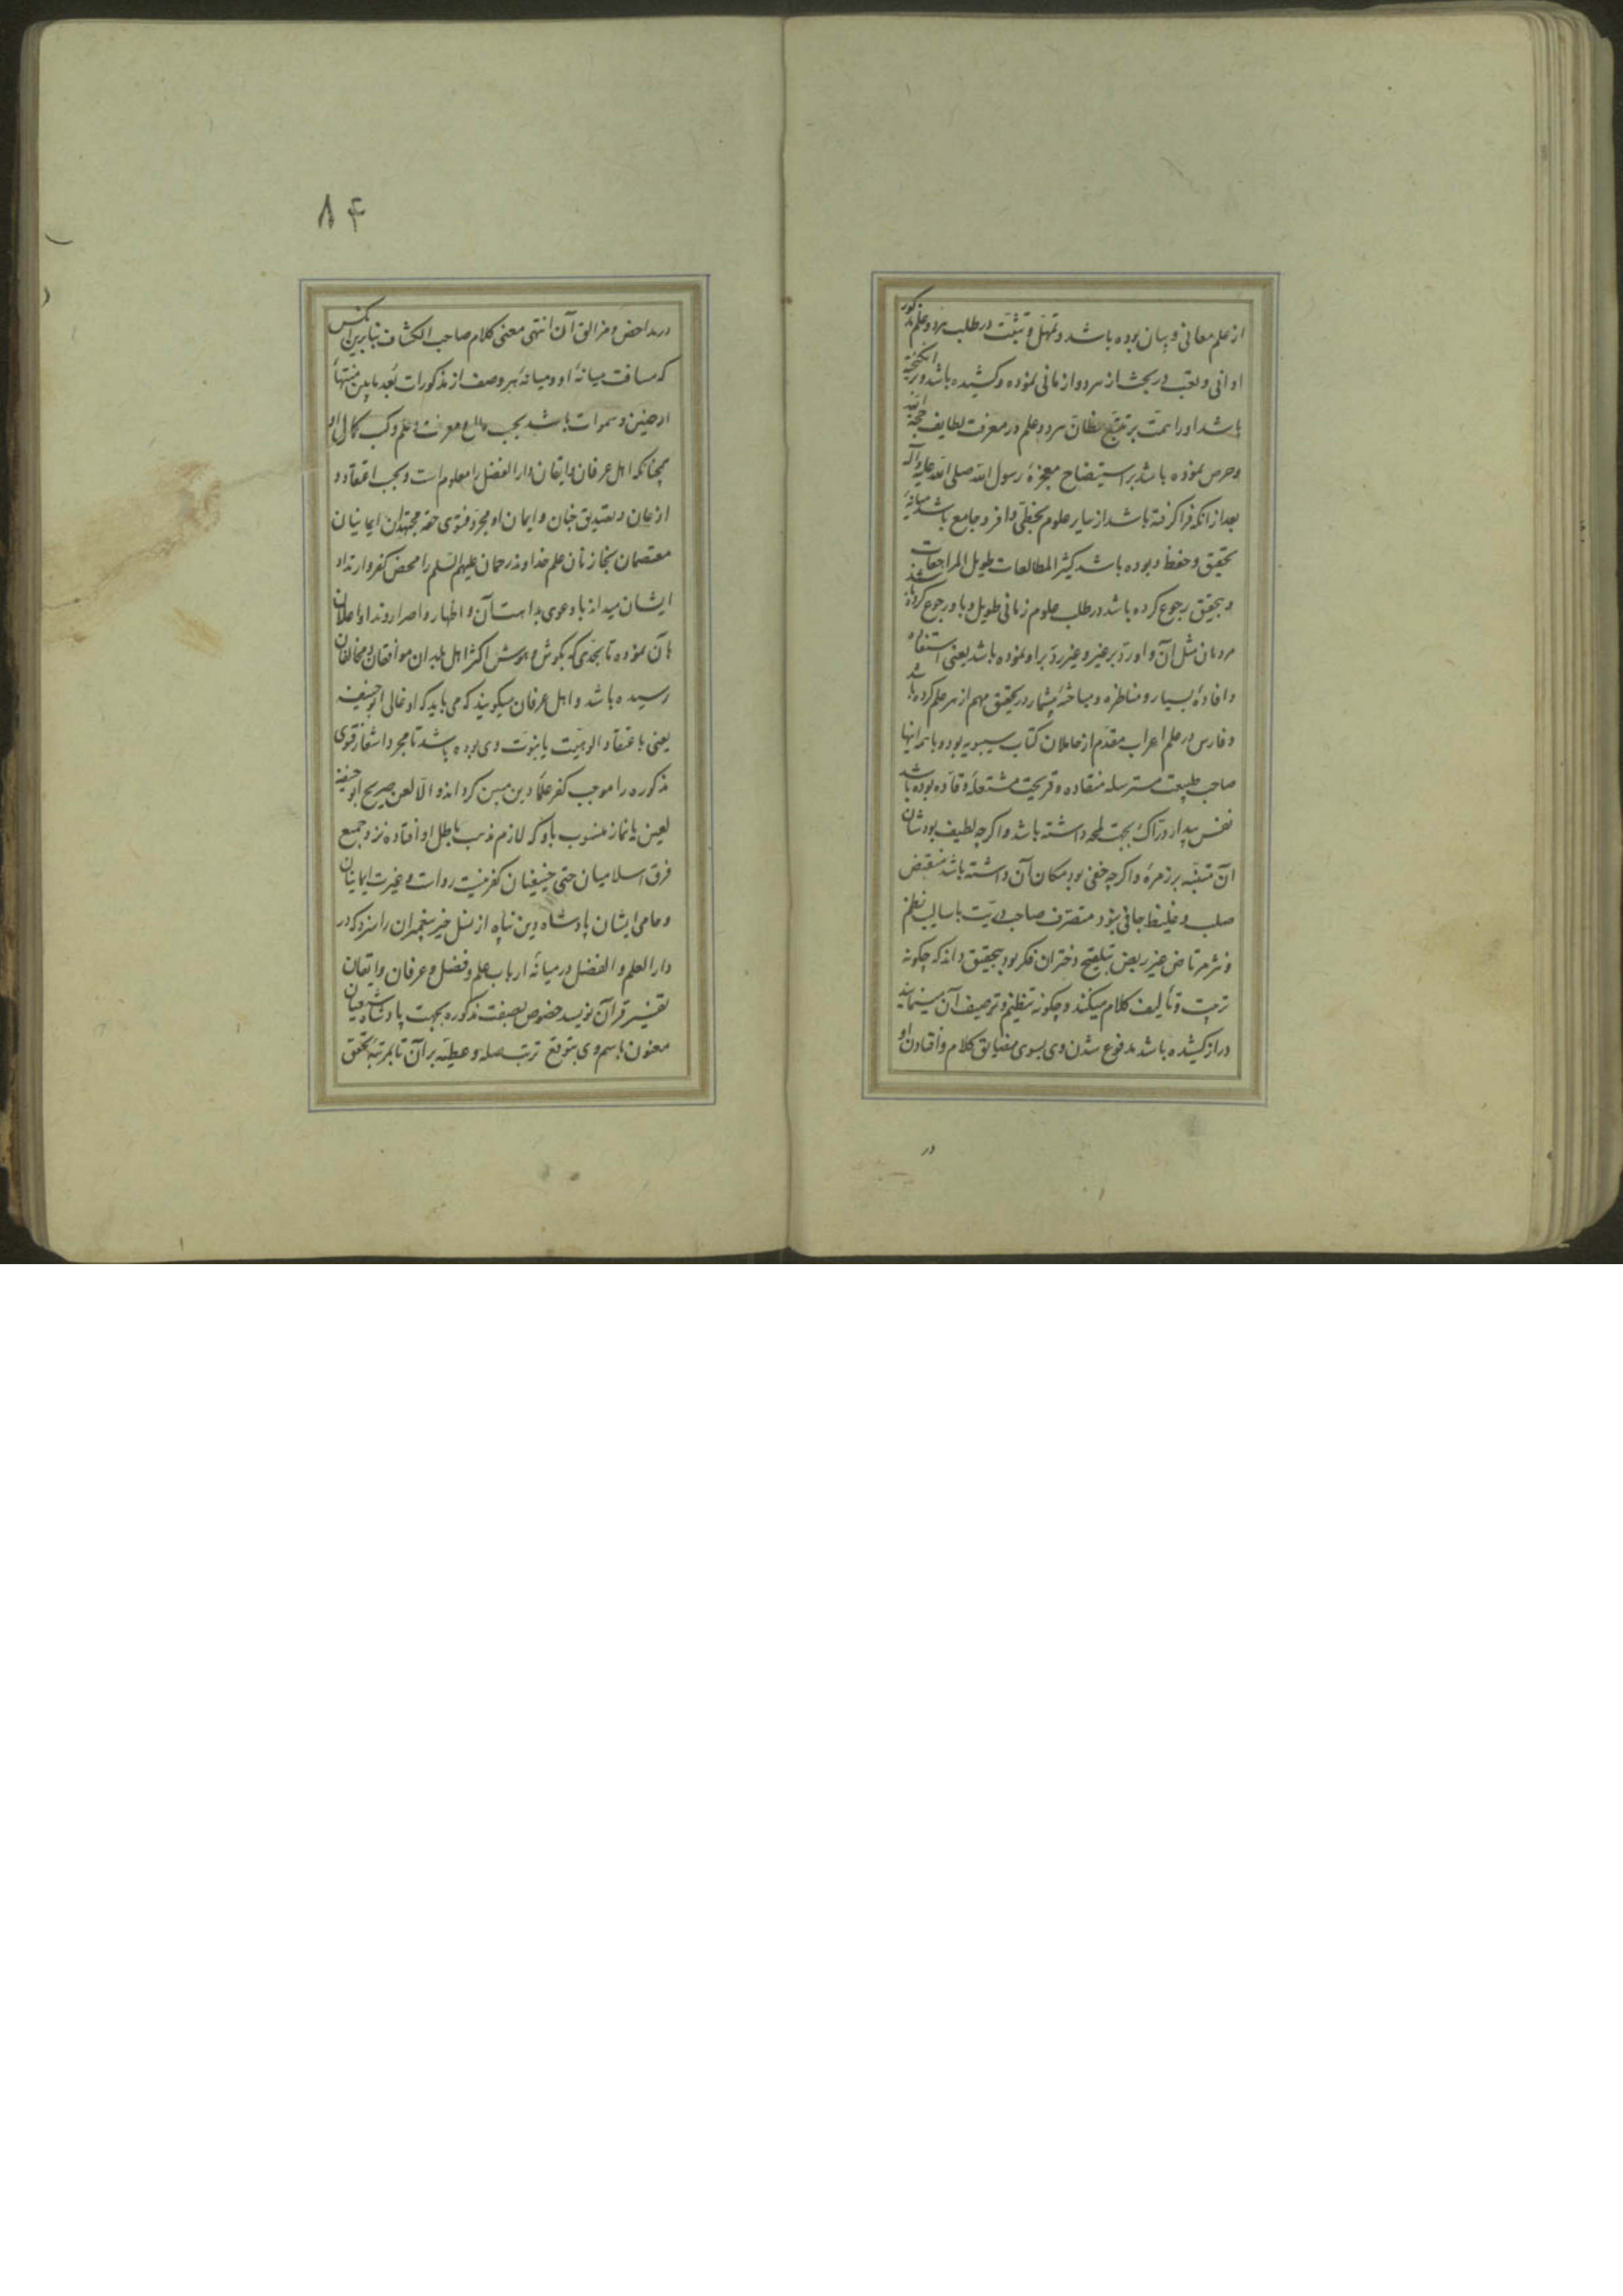 از علم معانی و بیان بوده باشد و تمهل و تثبت در طلب هر دو علم مذکور
اوانی و تعب در بحث از هر دو ازمانی نموده و کشیده باشد و برانگیخته
باشد او را همت بر تتبع مظان هر دو علم در معرفت لطایف حجة الله
و حرص نموده باشد بر استیضاح معجزهٔ رسول الله صلی الله علیه و آله
بعد از آنکه فرا گرفته باشد از سایر علوم بحظی وافر و جامع باشد میانهٔ
تحقیق و حفظ و بوده باشد کثیر المطالعات طویل المراجعات
و بتحقیق رجوع کرده باشد در طلب علوم زمانی طویل و باو رجوع کرده باشند
مردمان مثل آن و او رد بر غیر و غیر رد بر او نموده باشد یعنی استفاده
و افادهٔ بسیار و مناظره و مباحثهٔ بیشمار در تحقیق مهم از هر علم کرده باشد
و فارس در علم اعراب مقدم از حاملان کتاب سیبویه بود و با همه اینها
صاحب طبیعت مسترسله منقاده و قریحت مشتعله وقاده بوده باشد
نفس بیدار دراک بجهت لمحه داشته باشد و اگرچه لطیف بود شان
آن متنبه بر رمزه و اگرچه خفی بود مکان آن داشته باشد منقبض
صلب و غلیظ جافی نبود متصرف صاحب دریت باسالیب نظم
و نثر مرتاض غیر ریض بتلقیح دختران فکر بود بتحقیق داند که چگونه
ترتیب و تألیف کلام میکند و چگونه تنظیم و ترصیف آن مینماید
دراز کشیده باشد مدفوع شدن وی بسوی مضایق کلام و افتادن او
در
۸۴
در مداحض و مزالق آن انتهی معنی کلام صاحب الکشاف بنابرین آنکس
که مسافت میانهٔ او و میانهٔ هر وصف از مذکورات بعد مابین منتهای
ارضین و سموات باشد بحسب معرفت و علم و کسب کمال او
چنانکه اهل عرفان و ایقان دار الفضل را معلوم است و بحسب اعتقاد و
اذعان و تصدیق جنان و ایمان او مجرد فتوی حقه مجتهدان ایمانیان
معتصمان بخازنان علم خداوند رحمان علیهم السلم را محض کفر و ارتداد
ایشان میداند با دعوی بداهت آن و اظهار و اصرار وند او اعلان
بآن نموده تا بحدی که بگوش و هوش اکثر اهل بلدان موافقان و مخالفان
رسیده باشد و اهل عرفان میگویند که می باید که او غالی ابو حنیفه
یعنی باعتقاد الوهیت یا بنبوت وی بوده باشد تا مجرد اشعار فتوی
مذکوره را موجب کفر علماء دین مبین گرداند و الا لعن صریح ابو حنیفه
لعین یا نماز منسوب باو که لازم مذهب باطل او افتاده نزد جمیع
فرق اسلامیان حتی حنیفیان کفر نیست رواست و غیرت ایمانیان
و حامی ایشان پادشاه دین پناه از نسل خیر پیغمبران را سزد که در
دار العلم و الفضل در میانهٔ ارباب علم و فضل و عرفان و ایقان
تفسیر قرآن نویسد خصوص بصفت مذکوره بجهت پادشاه شیعیان
معنون باسم وی بتوقع ترتب صله و عطیه بر آن تا بمرتبهٔ تحقق